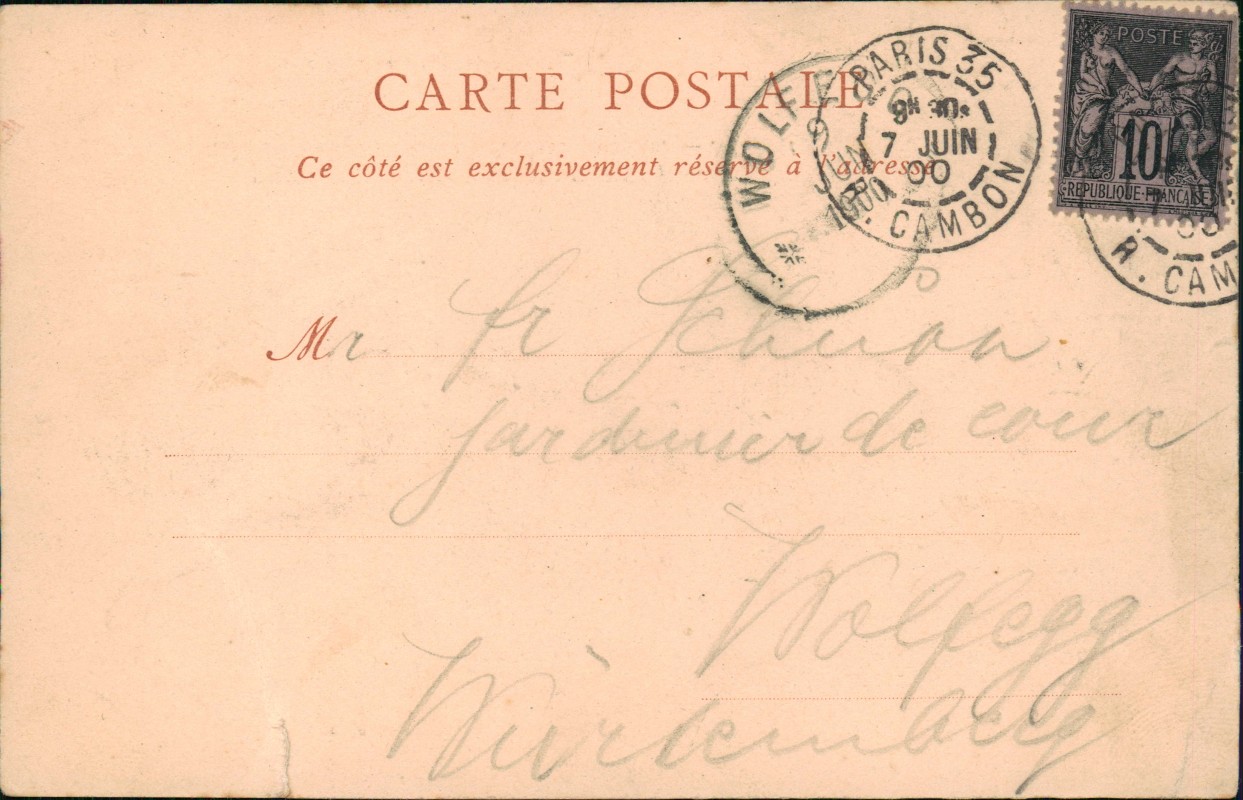 CARTE POSTALE
Ce côté est exclusivement réservé à l'adresse
PARIS 35
9H 30
7 JUIN
00
R. CAMBON
WOLFE
9 JUN
1900
POSTE
10
REPUBLIQUE FRANCAISE
R. CAM
Mr fr
jardinier de cour
Wolfegg
Würtemberg